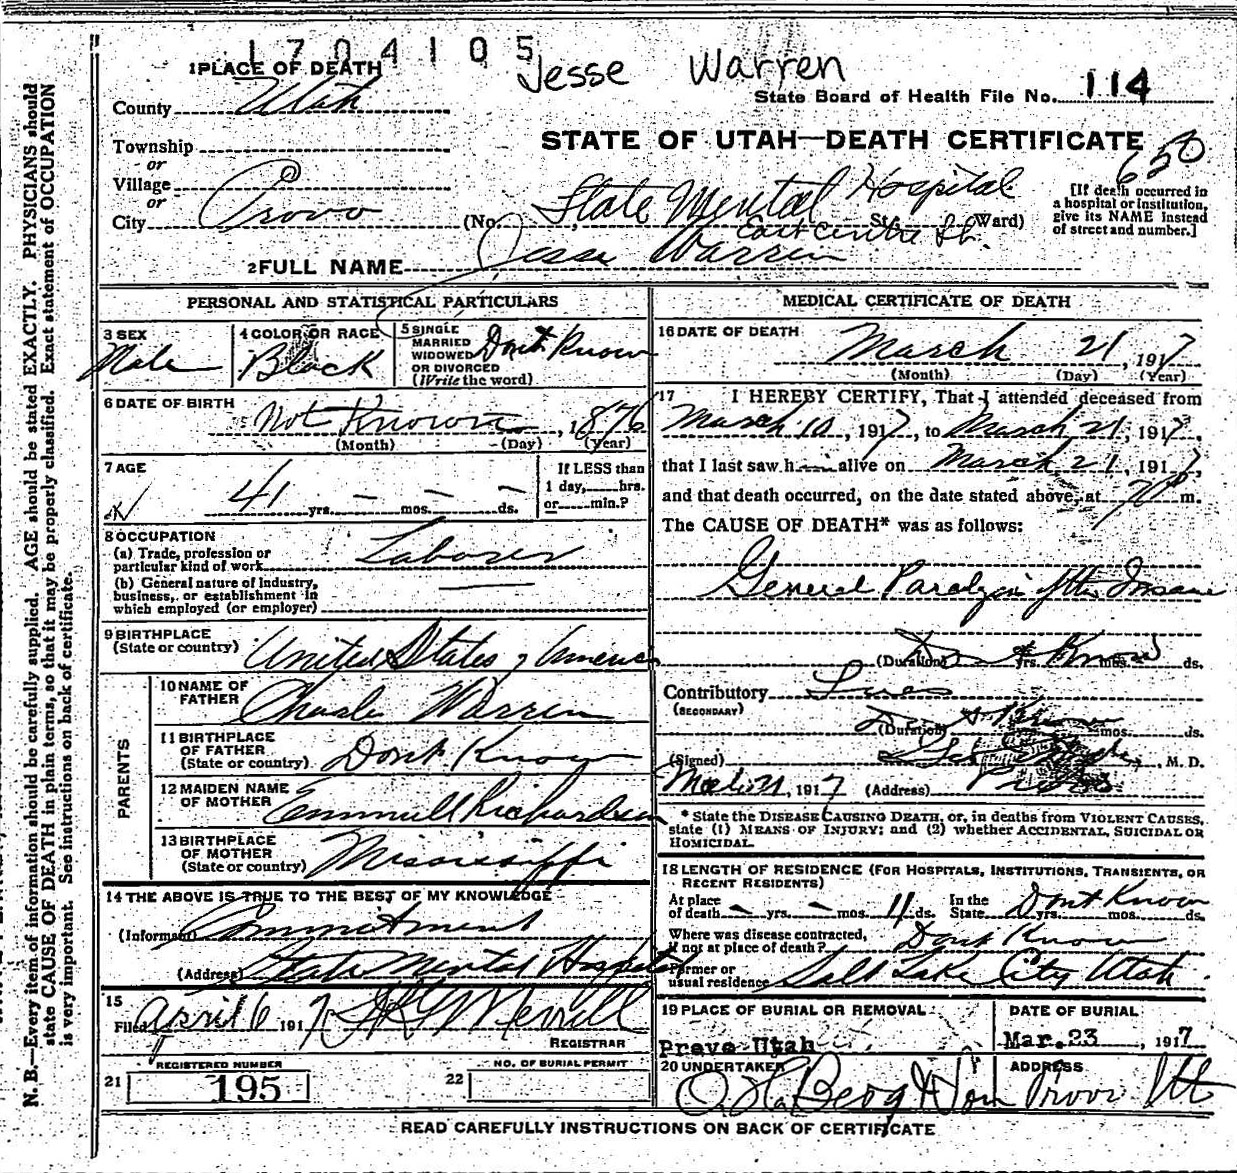 1704105
Jesse Warren
1 PLACE OF DEATH
County Utah
State Board of Health File No. 114
STATE OF UTAH—DEATH CERTIFICATE
650
Township
or
Village
or
City Provo
(No. State Mental Hospital St. Ward)
East Centre St.
[If death occurred in
a hospital or institution,
give its NAME instead
of street and number.]
2 FULL NAME Jesse Warren
PERSONAL AND STATISTICAL PARTICULARS
3 SEX
Male
4 COLOR OR RACE
Black
5 SINGLE
MARRIED
WIDOWED
OR DIVORCED
(Write the word)
Dont Know
6 DATE OF BIRTH
Not Known, 1876
(Month) (Day) (Year)
7 AGE
41 yrs. — mos. — ds.
If LESS than
1 day, hrs.
or min.?
8 OCCUPATION
(a) Trade, profession or
particular kind of work Laborer
(b) General nature of industry,
business, or establishment in
which employed (or employer)
9 BIRTHPLACE
(State or country) United States of America
PARENTS
10 NAME OF
FATHER Charle Warren
11 BIRTHPLACE
OF FATHER
(State or country) Dont Know
12 MAIDEN NAME
OF MOTHER Richardson
13 BIRTHPLACE
OF MOTHER
(State or country) Mississippi
14 THE ABOVE IS TRUE TO THE BEST OF MY KNOWLEDGE
(Informant) Commitment
(Address) State Mental Hospital
15
Filed April 6 1917 Merrill
REGISTRAR
21
REGISTERED NUMBER
195
22
NO. OF BURIAL PERMIT
MEDICAL CERTIFICATE OF DEATH
16 DATE OF DEATH
March 21, 1917
(Month) (Day) (Year)
17 I HEREBY CERTIFY, That I attended deceased from
March 10, 1917, to March 21, 1917,
that I last saw h alive on March 21, 1917,
and that death occurred, on the date stated above, at m.
The CAUSE OF DEATH* was as follows:
General Paralysis of the Insane
(Duration) Dont Know yrs. mos. ds.
Contributory Lues
(SECONDARY)
(Duration) Dont Know yrs. mos. ds.
(Signed) , M. D.
Mch 21, 1917 (Address) Provo
* State the DISEASE CAUSING DEATH, or, in deaths from VIOLENT CAUSES,
state (1) MEANS OF INJURY; and (2) whether ACCIDENTAL, SUICIDAL OR
HOMICIDAL.
18 LENGTH OF RESIDENCE (FOR HOSPITALS, INSTITUTIONS, TRANSIENTS, OR
RECENT RESIDENTS)
At place
of death — yrs. — mos. 11 ds.
In the
State Dont Know yrs. mos. ds.
Where was disease contracted,
if not at place of death? Dont Know
Former or
usual residence Salt Lake City Utah
19 PLACE OF BURIAL OR REMOVAL
Provo Utah
DATE OF BURIAL
Mar. 23, 1917
20 UNDERTAKER
Berg & Son
ADDRESS
Provo Ut
READ CAREFULLY INSTRUCTIONS ON BACK OF CERTIFICATE
N. B.—Every item of information should be carefully supplied. AGE should be stated EXACTLY. PHYSICIANS should
state CAUSE OF DEATH in plain terms, so that it may be properly classified. Exact statement of OCCUPATION
is very important. See instructions on back of certificate.